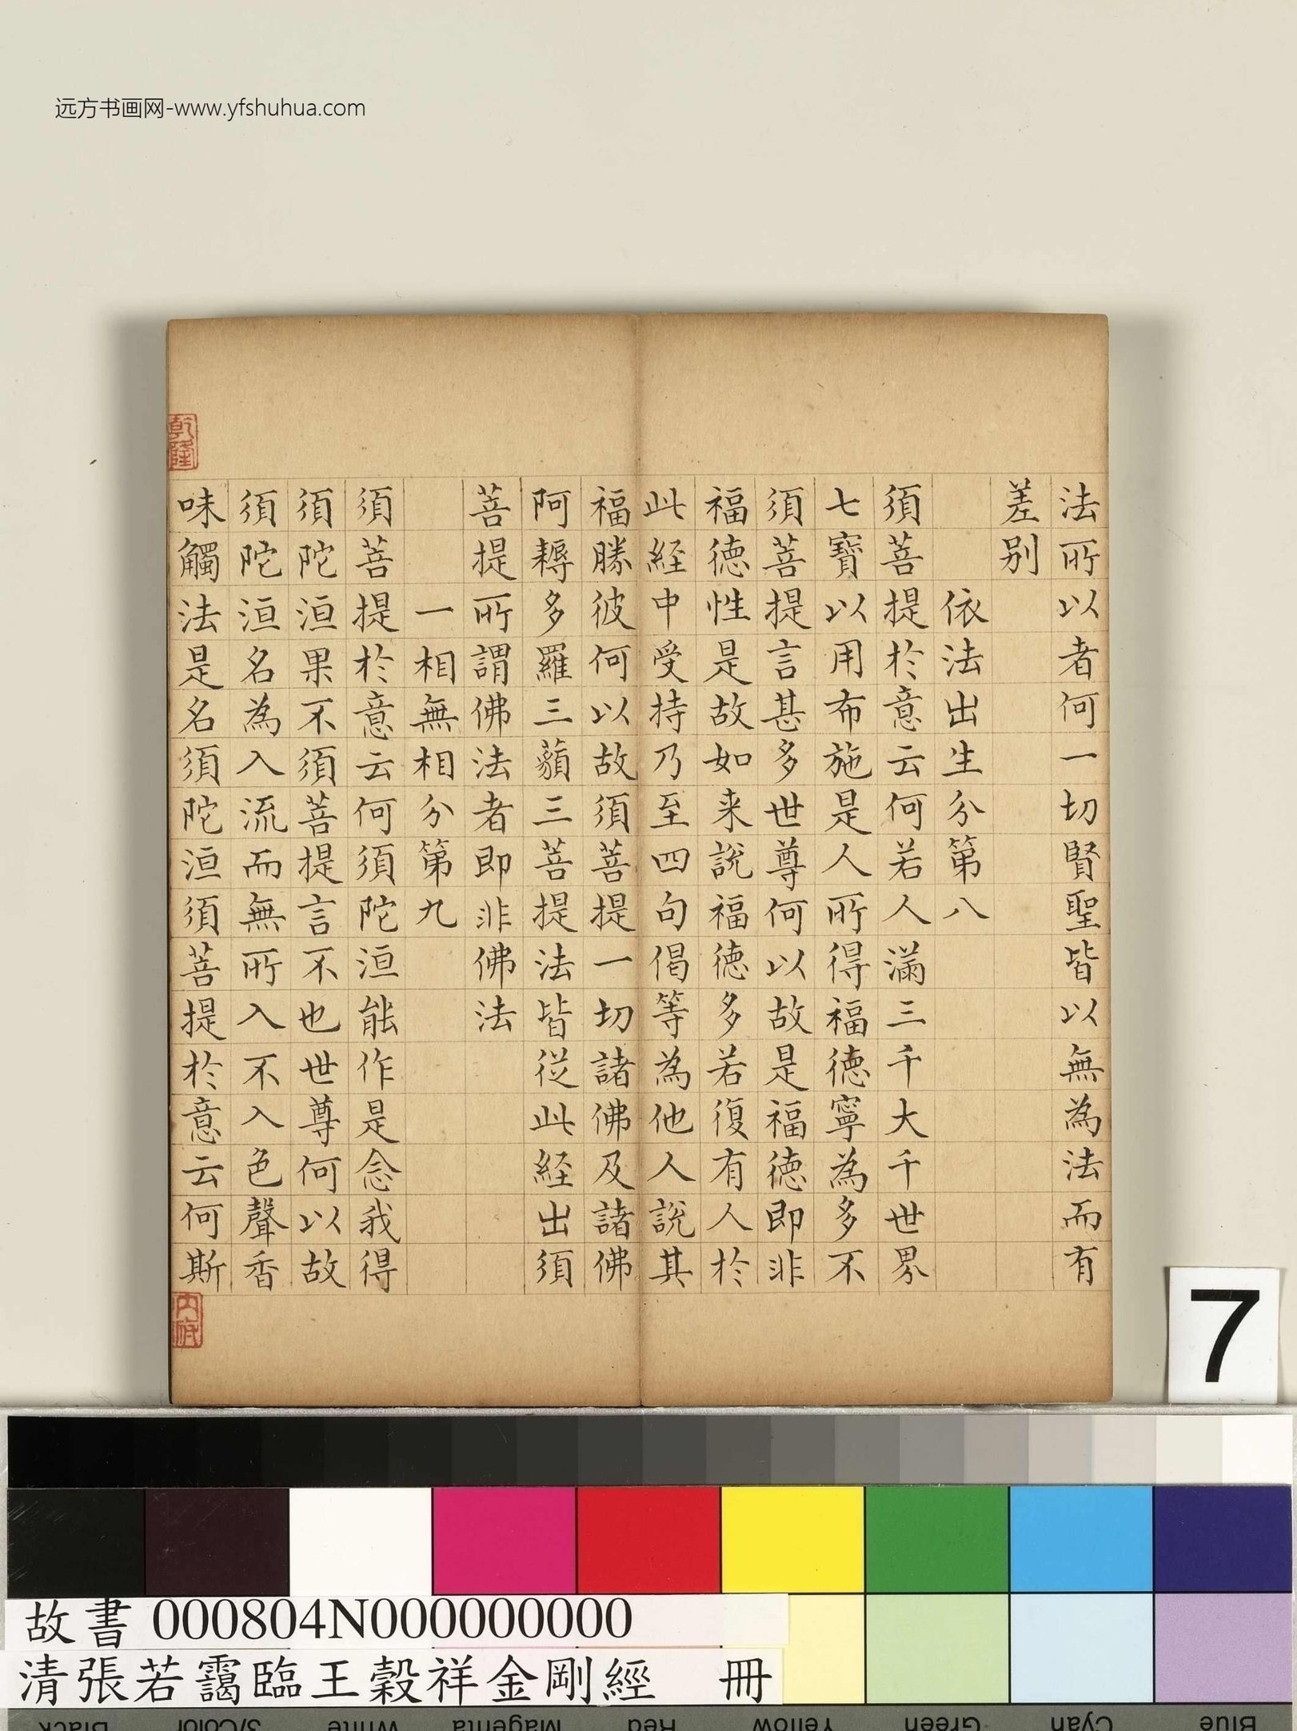 远方书画网-www.yfshuhua.com
法所以者何一切賢聖皆以無為法而有
差别
依法出生分第八
須菩提於意云何若人滿三千大千世界
七寶以用布施是人所得福德寧為多不
須菩提言甚多世尊何以故是福德即非
福德性是故如来說福德多若復有人於
此經中受持乃至四句偈等為他人說其
福勝彼何以故須菩提一切諸佛及諸佛
阿耨多羅三藐三菩提法皆從此經出須
菩提所謂佛法者即非佛法
一相無相分第九
須菩提於意云何須陀洹能作是念我得
須陀洹果不須菩提言不也世尊何以故
須陀洹名為入流而無所入不入色聲香
味觸法是名須陀洹須菩提於意云何斯
乾隆
内府
7
故書 000804N000000000
清張若靄臨王穀祥金剛經 冊
Black 3/Color White Magenta Red Yellow Green Cyan Blue